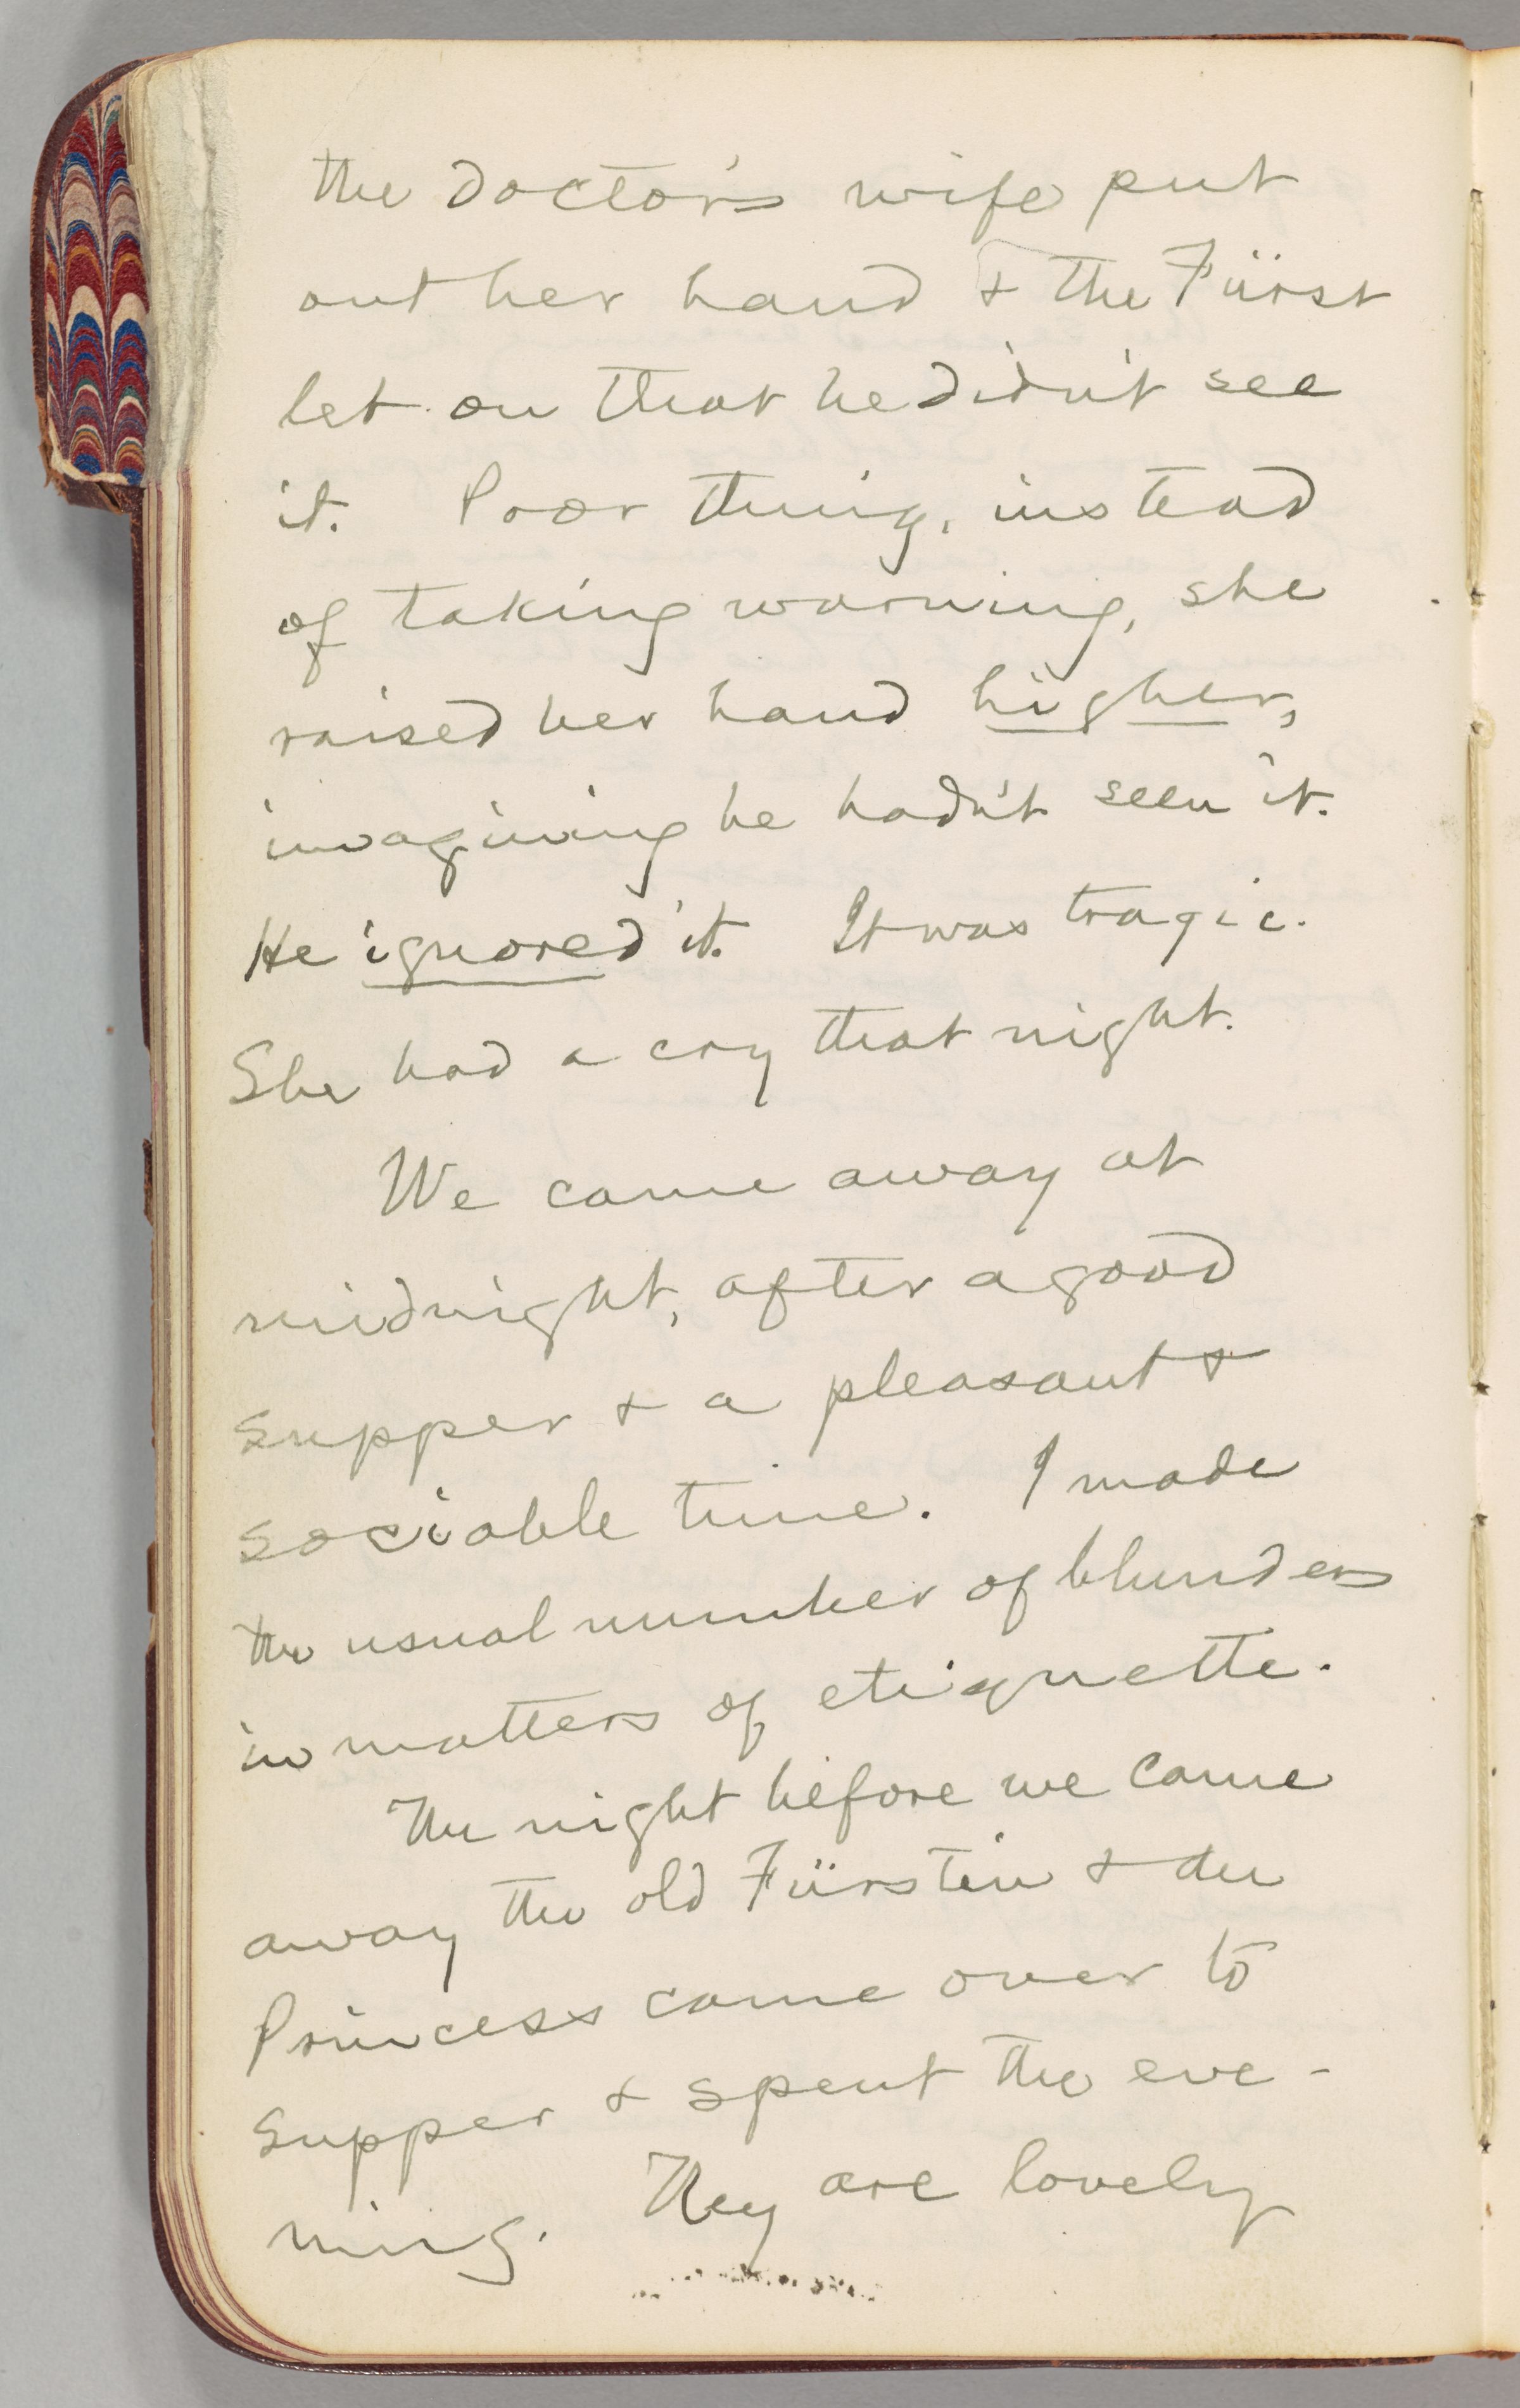 the doctor's wife put
out her hand & the Fürst
let on that he didn't see
it. Poor thing, instead
of taking warning, she
raised her hand higher,
imagining he hadn't seen it.
He ignored it. It was tragic.
She had a cry that night.
We came away at
midnight, after a good
supper & a pleasant &
sociable time. I made
the usual number of blunders
in matters of etiquette.
The night before we came
away the old Fürstin & der
Princess came over to
supper & spent the eve-
ning. They are lovely